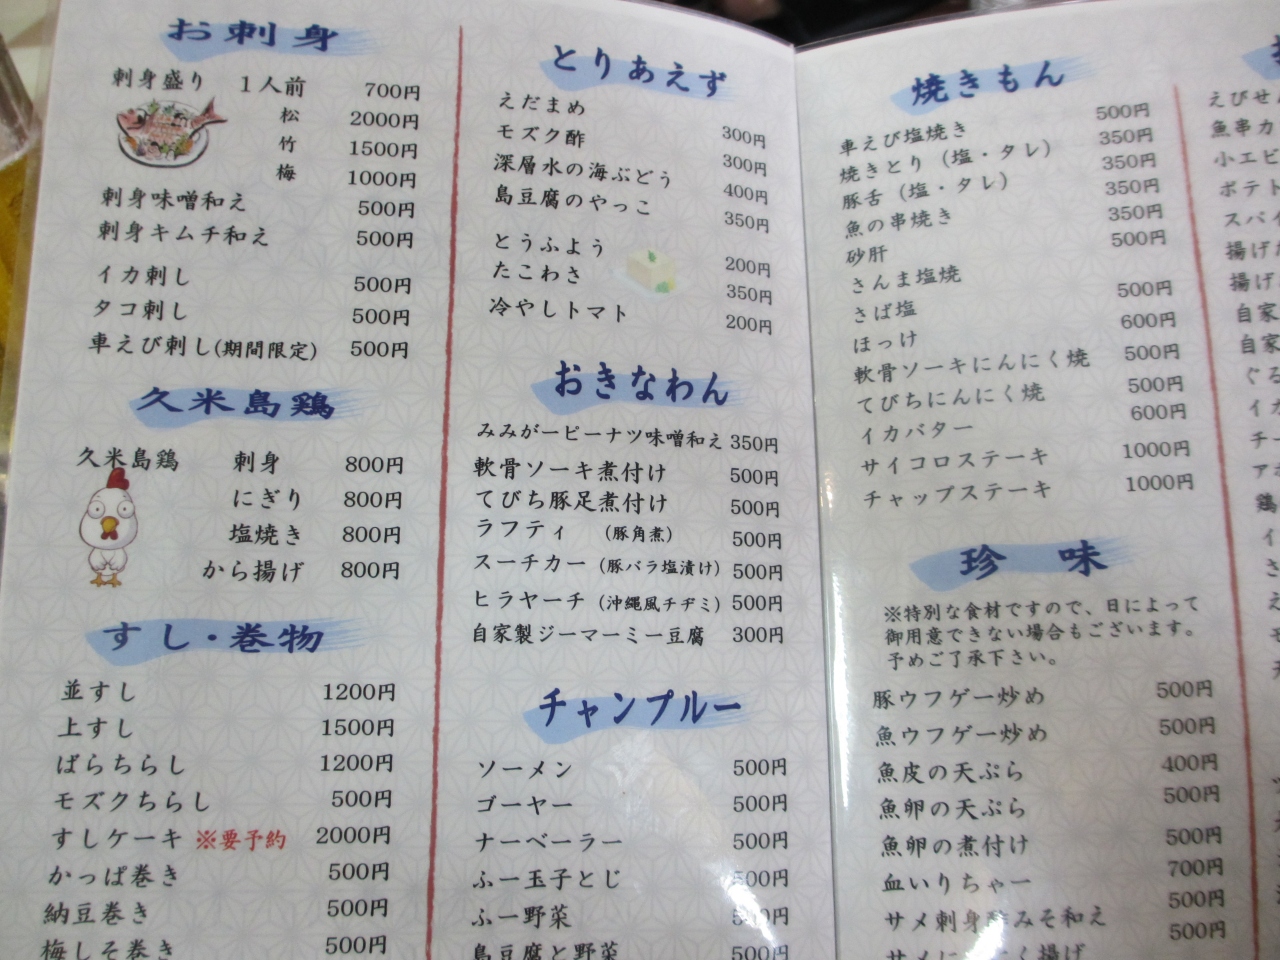 お刺身
刺身盛り 1人前 700円
松 2000円
竹 1500円
梅 1000円
刺身味噌和え 500円
刺身キムチ和え 500円
イカ刺し 500円
タコ刺し 500円
車えび刺し(期間限定) 500円
久米島鶏
久米島鶏 刺身 800円
にぎり 800円
塩焼き 800円
から揚げ 800円
すし・巻物
並すし 1200円
上すし 1500円
ばらちらし 1200円
モズクちらし 500円
すしケーキ ※要予約 2000円
かっぱ巻き 500円
納豆巻き 500円
梅しそ巻き 500円
とりあえず
えだまめ 300円
モズク酢 300円
深層水の海ぶどう 400円
島豆腐のやっこ 350円
とうふよう 200円
たこわさ 350円
冷やしトマト 200円
おきなわん
みみがーピーナツ味噌和え 350円
軟骨ソーキ煮付け 500円
てびち豚足煮付け 500円
ラフティ (豚角煮) 500円
スーチカー (豚バラ塩漬け) 500円
ヒラヤーチ (沖縄風チヂミ) 500円
自家製ジーマーミー豆腐 300円
チャンプルー
ソーメン 500円
ゴーヤー 500円
ナーベーラー 500円
ふー玉子とじ 500円
ふー野菜 500円
島豆腐と野菜 500円
焼きもん
車えび塩焼き 500円
焼きとり (塩・タレ) 350円
豚舌 (塩・タレ) 350円
魚の串焼き 350円
砂肝 350円
さんま塩焼 500円
さば塩 500円
ほっけ 600円
軟骨ソーキにんにく焼 500円
てびちにんにく焼 500円
イカバター 600円
サイコロステーキ 1000円
チャップステーキ 1000円
珍味
※特別な食材ですので、日によって
御用意できない場合もございます。
予めご了承下さい。
豚ウフゲー炒め 500円
魚ウフゲー炒め 500円
魚皮の天ぷら 400円
魚卵の天ぷら 500円
魚卵の煮付け 500円
血いりちゃー 700円
サメ刺身酢みそ和え 500円
サメにんにく揚げ 500円
えびせん
魚串カ
小エビ
ポテト
スパイ
揚げ
揚げ
自家
自家
ぐる
イカ
チー
鶏